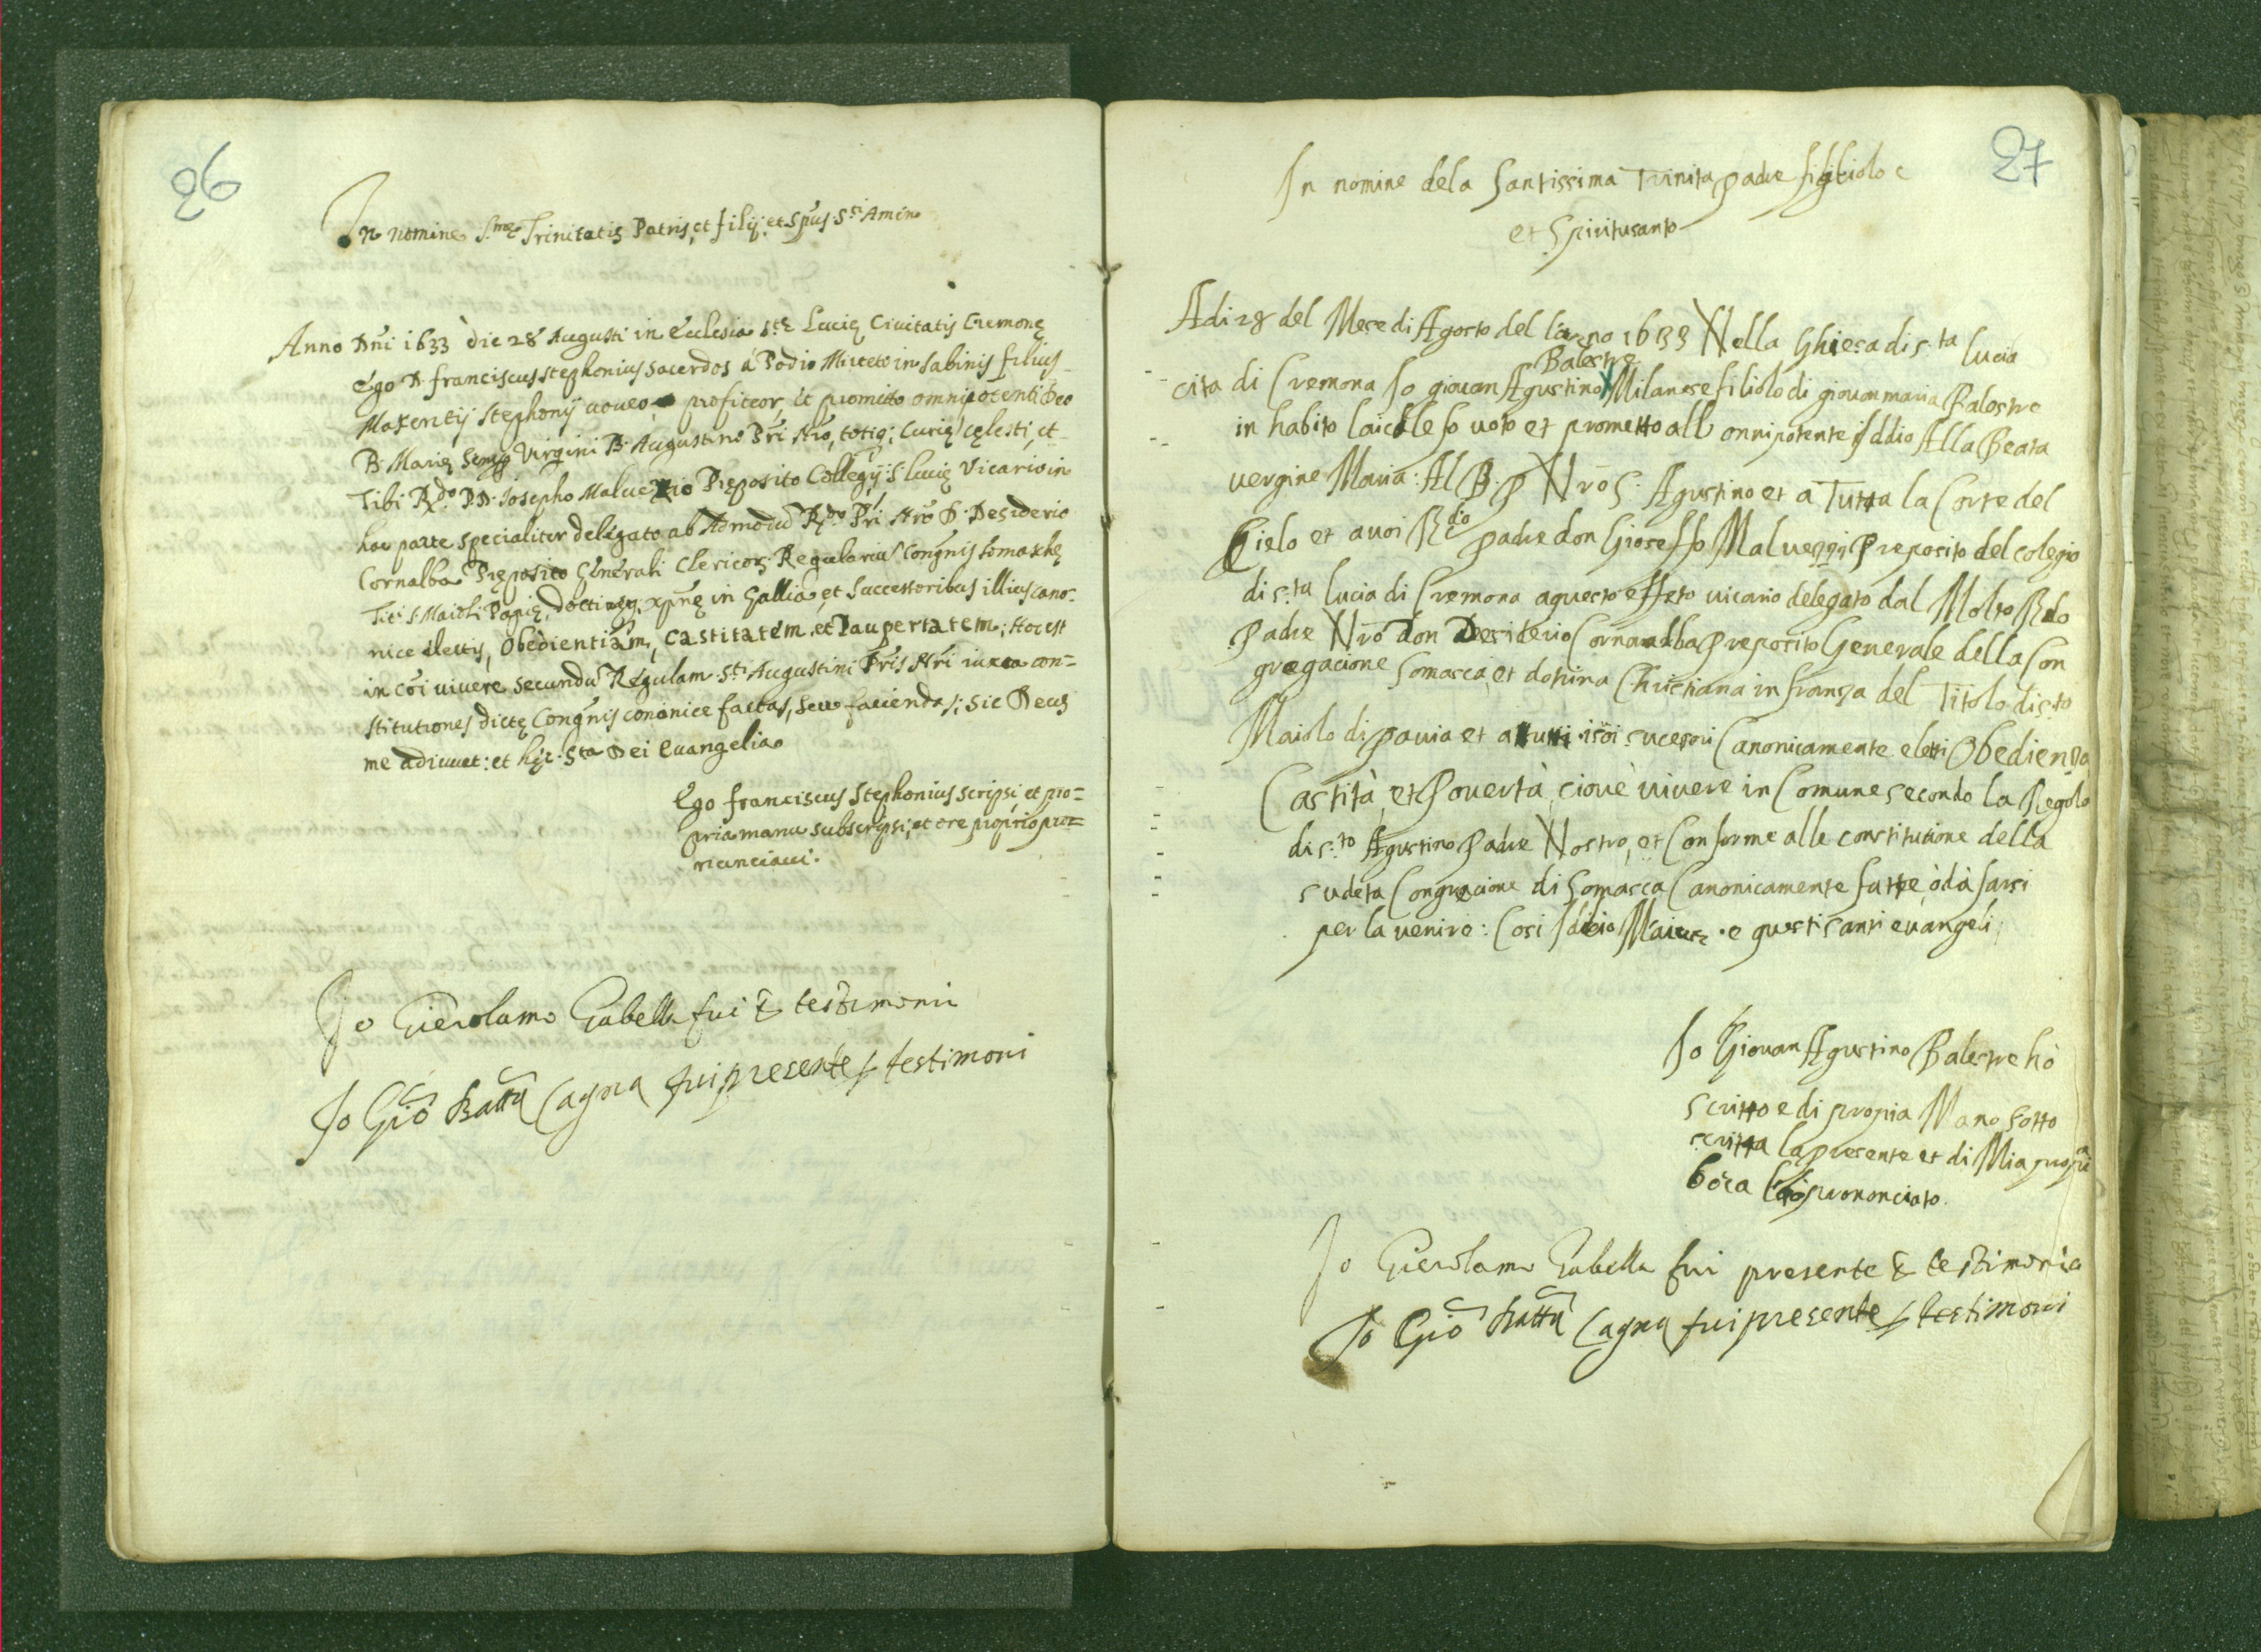 26
In nomine S.mę Trinitatis Patris, et filij, et Spūs S.ti Amen
Anno Dñi 1633 die 28 Augusti in Ecclesia S.tę Lucię Civitatis Cremonę
Ego D. franciscus Stephonius sacerdos à Podio Mirteto in Sabinis filius
Maxentij Stephonij voveo, profiteor, et promitto omnipotenti Deo
B. Marię semp Virgini B. Augustino Pri Nro, totiq; Curię cęlesti, et
Tibi R.do P.D. Iosepho Malvezzio Pręposito Collegij S. Lucię Vicario in
hac parte specialiter delegato ab Admodū R.do Pri Nro D. Desiderio
Cornalba Pręposito Generali Clericor. Regulariū Congnis Somaschę
Tit. S. Maioli Papię, doctinęq; xp̄nę in Gallia, et Successoribus illius cano-
nice electis, Obedientiam, Castitatem, et Paupertatem; Hoc est
in cōi vivere secundū Regulam S.ti Augustini Pris Nri iuxta con-
stitutiones dictę Congnis cononice factas, seu faciendas; sic Deus
me adiuvet: et hęc S.ta Dei Evangelia
Ego franciscus Stephonius scripsi et pro-
pria manu subscripsi, et ore proprio pro-
nunciavi.
Io Gierolamo Gabella fui & testimonii
Io Giō Batta Cagna fui presente p testimoni
27
In nomine dela Santissima Trinita padre figliolo e
et Spiritusanto
Adi 28 del Mese di Agosto del lano 1633 Nella Ghiesa di s.ta lucia
Balestre
cita di Cremona Io giovan Agustino X Milanese filiolo di giovan maria Balestre
in habito laicale fo voto et prometto all onnipotente iddio Alla Beata
vergine Maria: Al B. P Nro S. Agustino et a Tutta la Corte del
Cielo et avoi R.do padre don Gioseffo Malvezzi Preposito del colegio
di s.ta lucia di Cremona aquesto effeto vicario delegato dal Molto R.do
Padre Nrō Don Desiderio Cornaalba Preposito Generale della Con
gregacione Somasca, et dotrina Christiana in franza del Titolo di s.to
Maiolo di pavia et a tutti i soi sucesori Canonicamente eletti Obedienza
Castità, et Povertà, cioué vivere in Comune secondo la Regola
di s.to Agustino Padre Nostro, et Conforme alle constitucione della
sudeta Congrecione di Somasca Canonicamente fatte, ò dà farsi
per la venire: Cosi Iddio Maiute e questi santi evangeli
Io Giovan Agustino Balestre hò
scritto e di propia Mano sotto
scritta la presente et di Mia propia
boca hò prononciato.
Io Gierolamo Gabella fui presente & testimonio
Io Giō Batta Cagna fui presente p testimoni